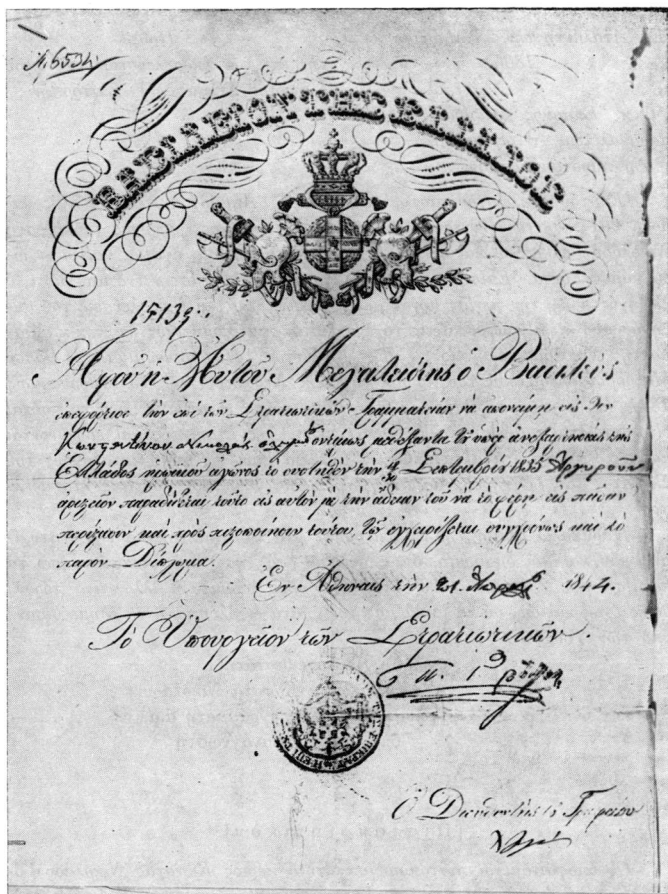 Α. 6534
ΒΑΣΙΛΕΙΟΝ ΤΗΣ ΕΛΛΑΔΟΣ
Ἀφοῦ ἡ Αὐτοῦ Μεγαλειότης ὁ Βασιλεὺς
τὴν ἐπὶ τῶν Στρατιωτικῶν Γραμματείαν νὰ ἀπονείμῃ εἰς τὸν
Κωνσταντῖνον Νικολάου μεθέξαντα τοῦ ὑπὲρ ἀνεξαρτησίας τῆς
Ἑλλάδος ἡρωικοῦ ἀγῶνος τὸ συστηθὲν τὴν Σεπτεμβρίου 1835 Ἀργυροῦν
ἀριστεῖον παραδίδεται τοῦτο εἰς αὐτὸν μὲ τὴν ἄδειαν τοῦ νὰ τὸ φέρῃ εἰς πᾶσαν
περίστασιν καὶ πρὸς πιστοποίησιν τούτου, τῷ ἐγχειρίζεται συγχρόνως καὶ τὸ
παρὸν Δίπλωμα.
Ἐν Ἀθήναις τὴν 21 1844.
Τὸ Ὑπουργεῖον τῶν Στρατιωτικῶν.
Ὁ Διευθυντὴς τοῦ Γραφείου